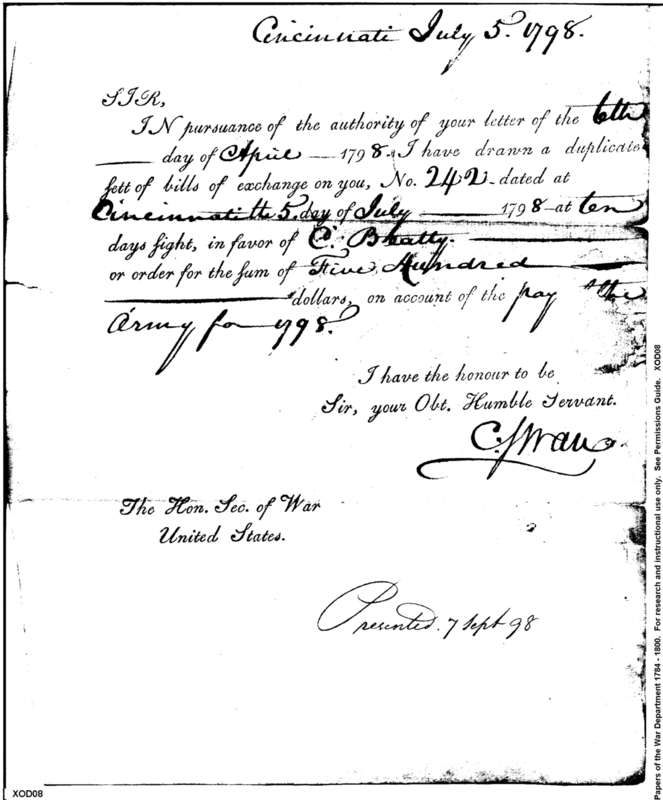 Cincinnati July 5. 1798.
SIR,
IN pursuance of the authority of your letter of the 6th
day of April 1798. I have drawn a duplicate
sett of bills of exchange on you, No. 242 dated at
Cincinnati the 5. day of July 1798 at ten
days sight, in favor of C. Beatty.
or order for the sum of Five Hundred
dollars, on account of the pay of the
Army for 1798.
I have the honour to be
Sir, your Obt. Humble Servant.
C. Swan
The Hon. Sec. of War
United States.
Presented. 7 Sept 98
XOD08
Papers of the War Department 1784 - 1800. For research and instructional use only. See Permissions Guide. XOD08